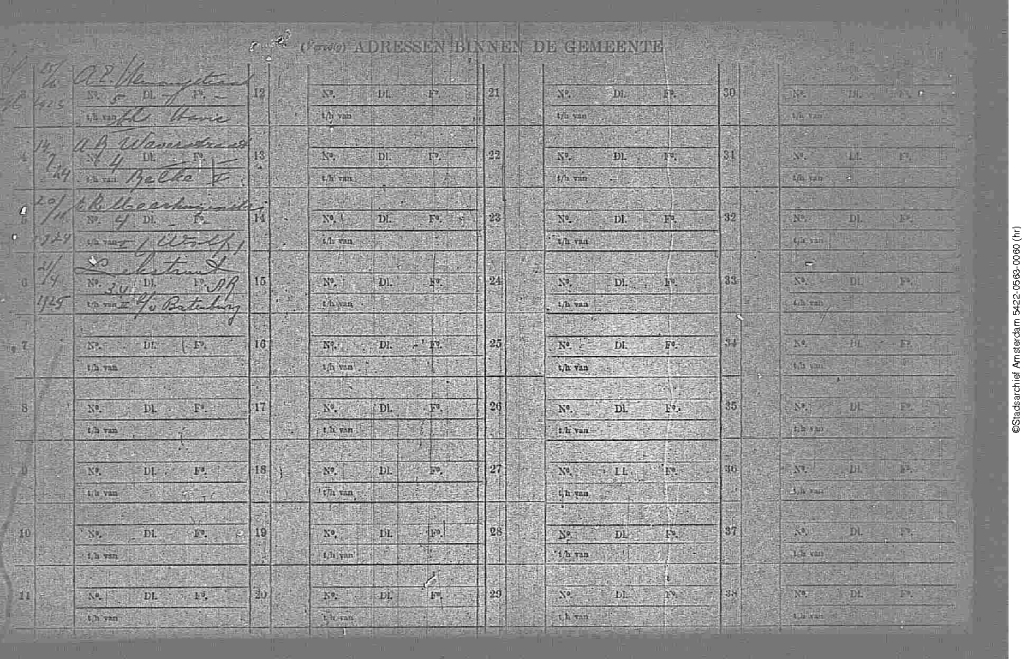 (Vervolg) ADRESSEN BINNEN DE GEMEENTE
25/
1923
No. 5 Dl. Fo.
t/h van
4
14/7 24
A. B. Waverstraat
No. 4 Dl. Fo.
t/h van Balke I
20/11 1924
No. 4 Dl. Fo.
t/h van I / Wolff
6
21/4 1925
Lekstraat
No. 34 Dl. Fo. AR
t/h van II
7
No. Dl. Fo.
t/h van
8
No. Dl. Fo.
t/h van
9
No. Dl. Fo.
t/h van
10
No. Dl. Fo.
t/h van
11
No. Dl. Fo.
t/h van
12
No. Dl. Fo.
t/h van
13
No. Dl. Fo.
t/h van
14
No. Dl. Fo.
t/h van
15
No. Dl. Fo.
t/h van
16
No. Dl. Fo.
t/h van
17
No. Dl. Fo.
t/h van
18
No. Dl. Fo.
t/h van
19
No. Dl. Fo.
t/h van
20
No. Dl. Fo.
t/h van
21
No. Dl. Fo.
t/h van
22
No. Dl. Fo.
t/h van
23
No. Dl. Fo.
t/h van
24
No. Dl. Fo.
t/h van
25
No. Dl. Fo.
t/h van
26
No. Dl. Fo.
t/h van
27
No. Dl. Fo.
t/h van
28
No. Dl. Fo.
t/h van
29
No. Dl. Fo.
t/h van
30
No. Dl. Fo.
t/h van
31
No. Dl. Fo.
t/h van
32
No. Dl. Fo.
t/h van
33
No. Dl. Fo.
t/h van
34
No. Dl. Fo.
t/h van
35
No. Dl. Fo.
t/h van
36
No. Dl. Fo.
t/h van
37
No. Dl. Fo.
t/h van
38
No. Dl. Fo.
t/h van
©Stadsarchief Amsterdam 5422-0563-0060 (hr)